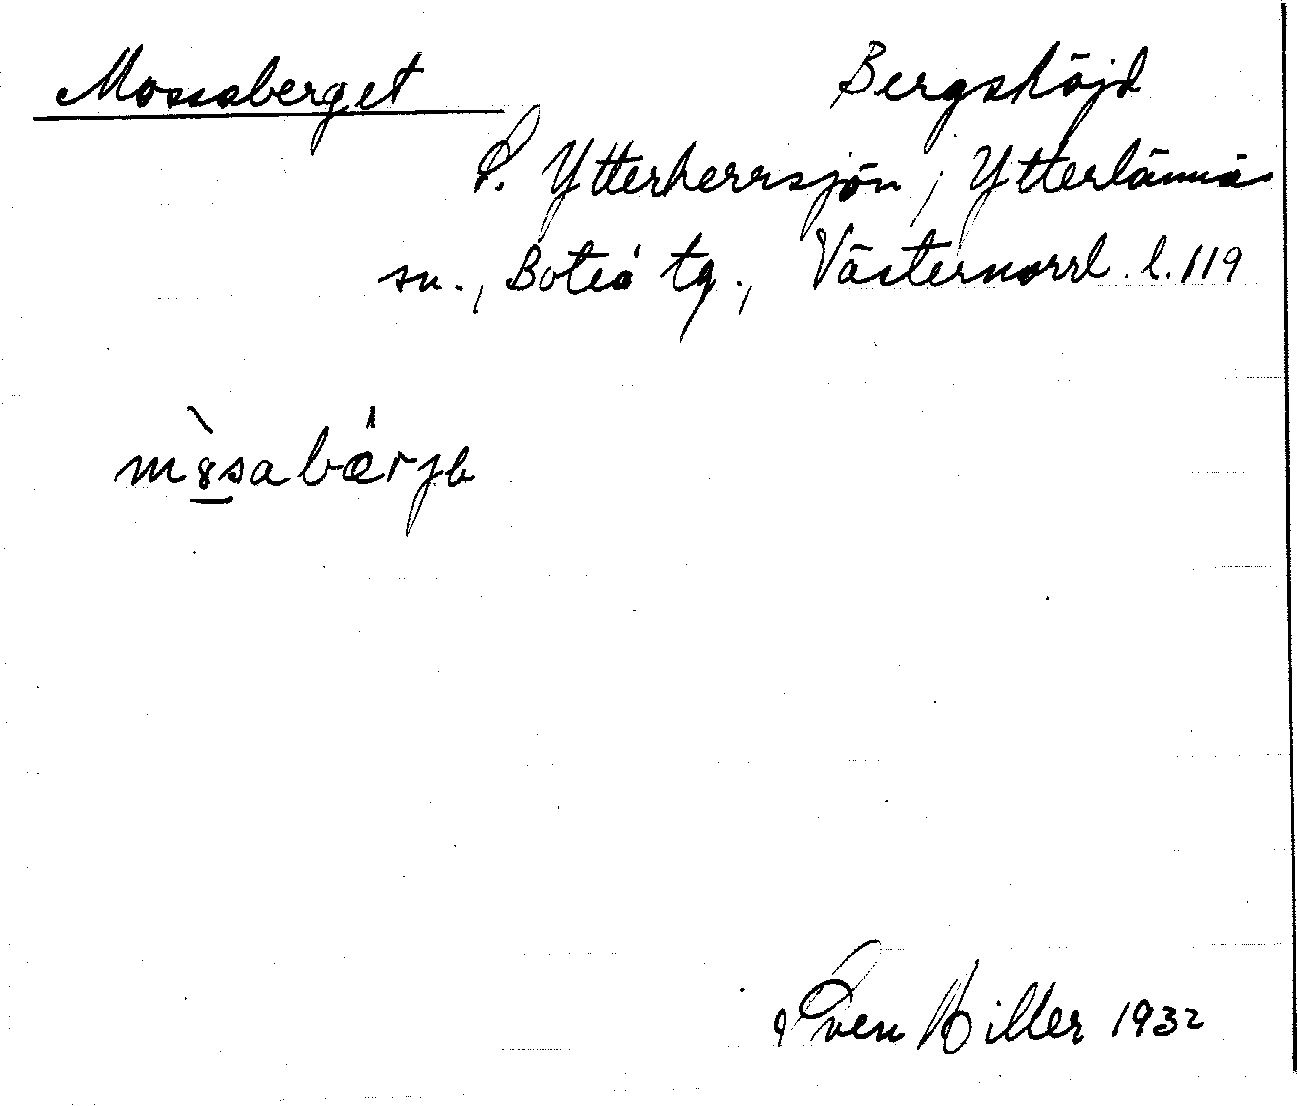 Mossaberget Bergshöjd
S. Ytterherrsjön, Ytterlännäs
sn., Boteå tg., Västernorrl. l. 119
m8sabärjb
Sven Hiller 1932